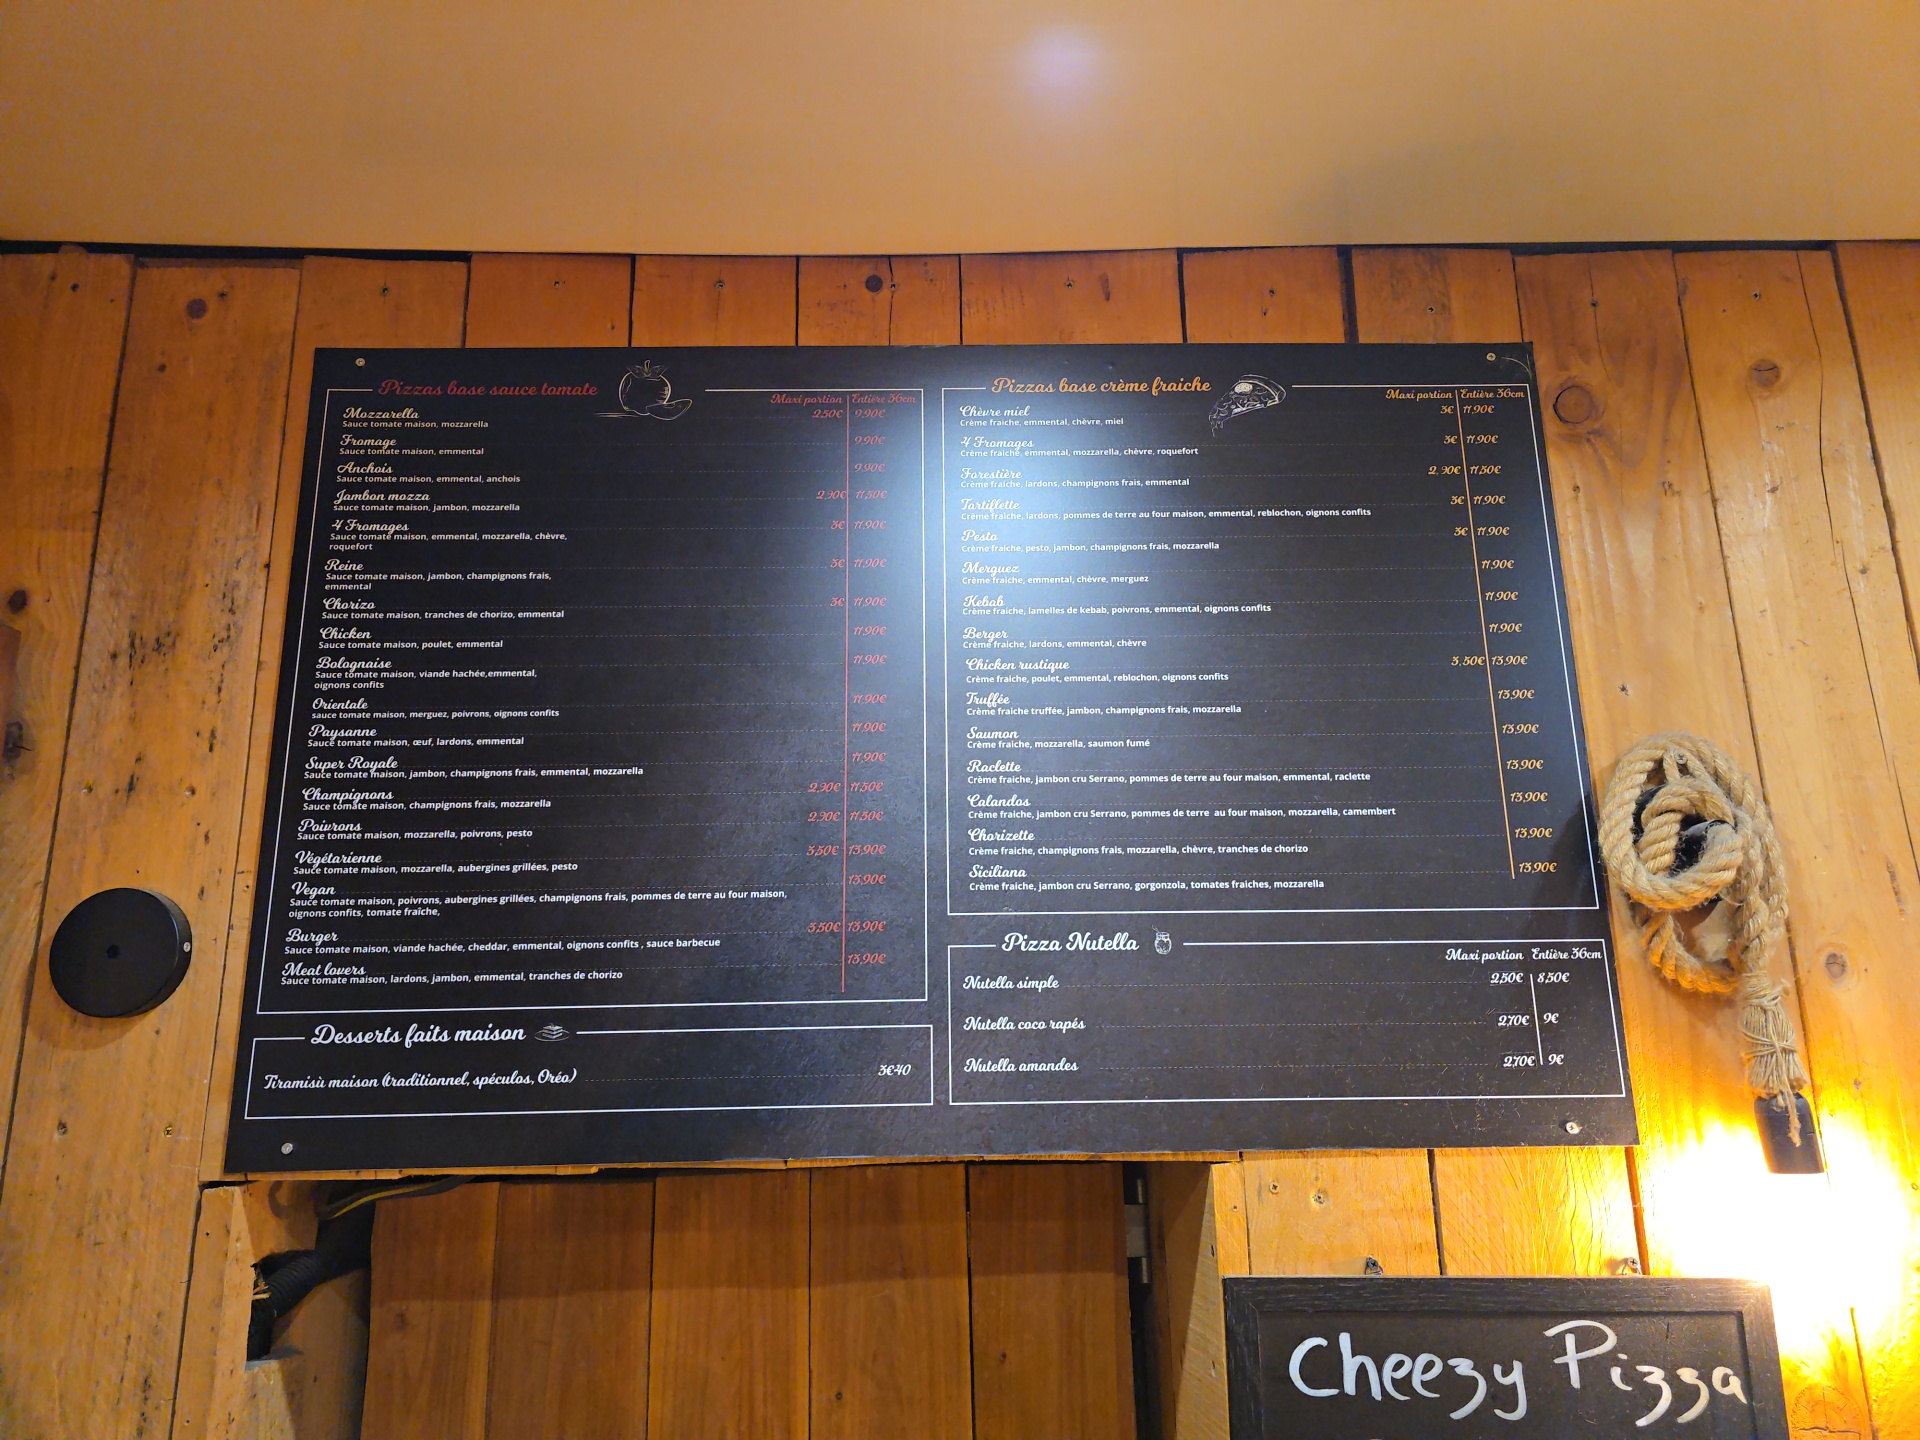 Pizzas base sauce tomate
Maxi portion Entière 36cm
Mozzarella 2,50€ 9,90€
Sauce tomate maison, mozzarella
Fromage 9,90€
Sauce tomate maison, emmental
Anchois 9,90€
Sauce tomate maison, emmental, anchois
Jambon mozza 2,90€ 11,50€
sauce tomate maison, jambon, mozzarella
4 Fromages 3€ 11,90€
Sauce tomate maison, emmental, mozzarella, chèvre,
roquefort
Reine 3€ 11,90€
Sauce tomate maison, jambon, champignons frais,
emmental
Chorizo 3€ 11,90€
Sauce tomate maison, tranches de chorizo, emmental
Chicken 11,90€
Sauce tomate maison, poulet, emmental
Bolognaise 11,90€
Sauce tomate maison, viande hachée,emmental,
oignons confits
Orientale 11,90€
sauce tomate maison, merguez, poivrons, oignons confits
Paysanne 11,90€
Sauce tomate maison, œuf, lardons, emmental
Super Royale 11,90€
Sauce tomate maison, jambon, champignons frais, emmental, mozzarella
Champignons 2,90€ 11,50€
Sauce tomate maison, champignons frais, mozzarella
Poivrons 2,90€ 11,50€
Sauce tomate maison, mozzarella, poivrons, pesto
Végétarienne 3,50€ 13,90€
Sauce tomate maison, mozzarella, aubergines grillées, pesto
Vegan 13,90€
Sauce tomate maison, poivrons, aubergines grillées, champignons frais, pommes de terre au four maison,
oignons confits, tomate fraîche,
Burger 3,50€ 13,90€
Sauce tomate maison, viande hachée, cheddar, emmental, oignons confits , sauce barbecue
Meat lovers 13,90€
Sauce tomate maison, lardons, jambon, emmental, tranches de chorizo
Desserts faits maison
Tiramisù maison (traditionnel, spéculos, Oréo) 3€40
Pizzas base crème fraiche
Maxi portion Entière 36cm
Chèvre miel 3€ 11,90€
Crème fraiche, emmental, chèvre, miel
4 Fromages 3€ 11,90€
Crème fraiche, emmental, mozzarella, chèvre, roquefort
Forestière 2,90€ 11,50€
Crème fraiche, lardons, champignons frais, emmental
Tartiflette 3€ 11,90€
Crème fraiche, lardons, pommes de terre au four maison, emmental, reblochon, oignons confits
Pesto 3€ 11,90€
Crème fraiche, pesto, jambon, champignons frais, mozzarella
Merguez 11,90€
Crème fraiche, emmental, chèvre, merguez
Kebab 11,90€
Crème fraiche, lamelles de kebab, poivrons, emmental, oignons confits
Berger 11,90€
Crème fraiche, lardons, emmental, chèvre
Chicken rustique 3,50€ 13,90€
Crème fraiche, poulet, emmental, reblochon, oignons confits
Truffée 13,90€
Crème fraiche truffée, jambon, champignons frais, mozzarella
Saumon 13,90€
Crème fraiche, mozzarella, saumon fumé
Raclette 13,90€
Crème fraiche, jambon cru Serrano, pommes de terre au four maison, emmental, raclette
Calandos 13,90€
Crème fraiche, jambon cru Serrano, pommes de terre au four maison, mozzarella, camembert
Chorizette 13,90€
Crème fraiche, champignons frais, mozzarella, chèvre, tranches de chorizo
Siciliana 13,90€
Crème fraiche, jambon cru Serrano, gorgonzola, tomates fraiches, mozzarella
Pizza Nutella
Maxi portion Entière 36cm
Nutella simple 2,50€ 8,50€
Nutella coco rapés 2,70€ 9€
Nutella amandes 2,70€ 9€
Cheezy Pizza